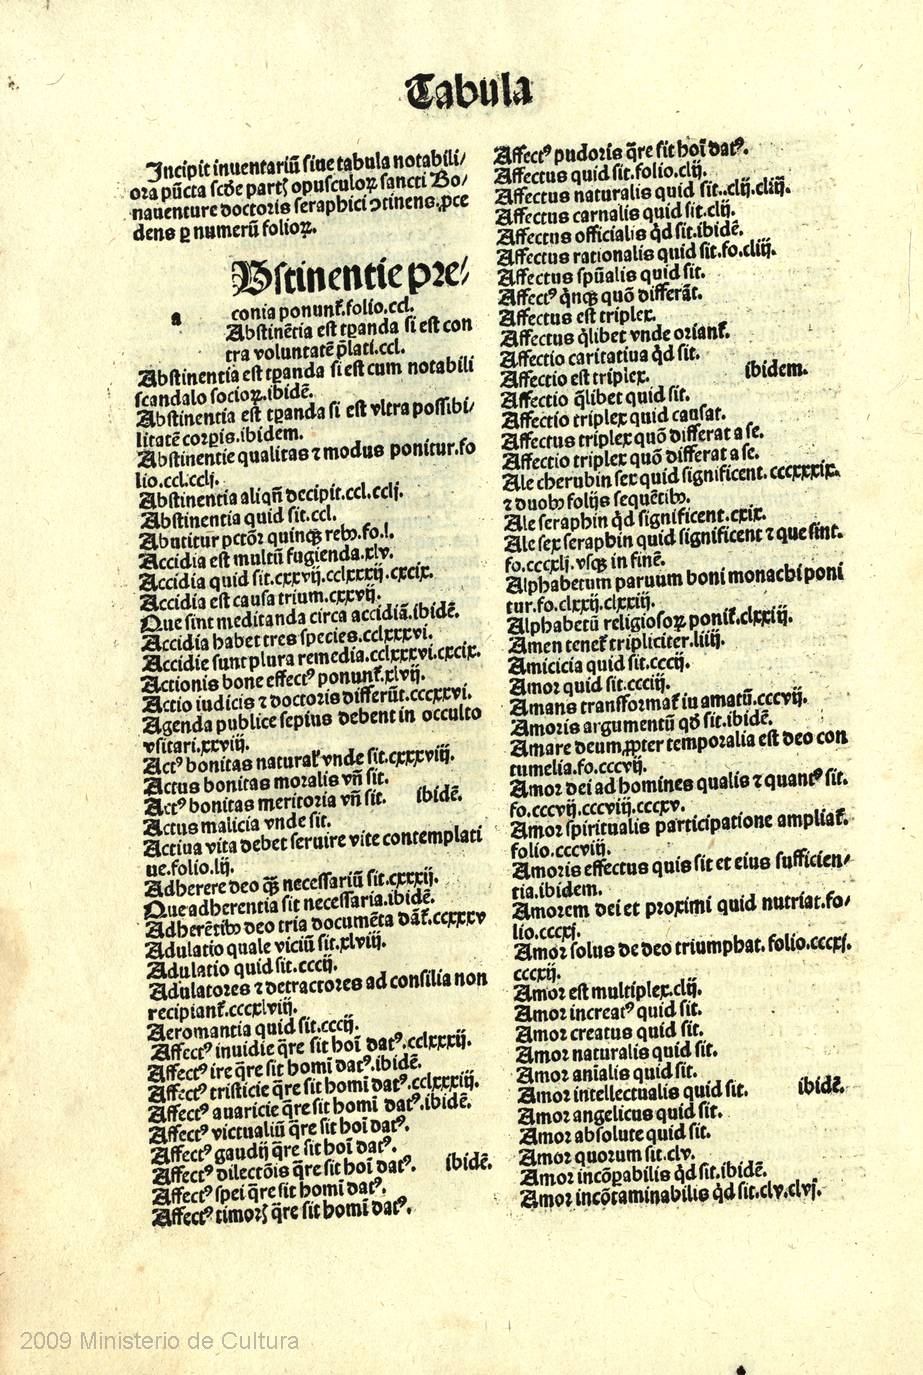 Tabula
Incipit inuentariū siue tabula notabili/
ora pūcta scde partꝭ opusculoꝝ sancti Bo/
nauenture doctoris seraphici ↄtinens.ꝓce
dens ꝑ numerū folioꝝ.
Bstinentie pre/
a
conia ponunt̄.folio.ccl.
Abstinētia est tꝑanda si est con
tra voluntatē p̄lati.ccl.
Abstinentia est tꝑanda si est cum notabili
scandalo socioꝝ.ibidē.
Abstinentia est tꝑanda si est vltra possibi/
litatē corꝑis.ibidem.
Abstinentie qualitas ⁊ modus ponitur.fo
lio.ccl.cclj.
Abstinentia aliqn̄ decipit.ccl.cclj.
Abstinentia quid sit.ccl.
Abutitur pctōꝛ quinqꝫ rebꝰ.fo.l.
Accidia est multū fugienda.xlv.
Accidia quid sit.cxxvij.cclxxxij.cxcix.
Accidia est causa trium.cxxvij.
Que sint meditanda circa accidiā.ibidē.
Accidia habet tres species.cclxxxvi.
Accidie sunt plura remedia.cclxxxvi.cxcix.
Actionis bone effectꝰ ponunt̄.xlvij.
Actio iudicis ⁊ doctoris differūt.cccxxvi.
Agenda publice sepius debent in occulto
vsitari.xxviij.
Actꝰ bonitas natural̄ vnde sit.cxxxviij.
Actus bonitas moralis vn̄ sit.
Actꝰ bonitas meritoria vn̄ sit. ibidē.
Actus malicia vnde sit.
Actiua vita debet seruire vite contemplati
ue.folio.lij.
Adherere deo qꝫ necessariū sit.cxxxij.
Que adherentia sit necessaria.ibidē.
Adherētibꝰ deo tria documēta dāt̄.ccxxxv
Adulatio quale viciū sit.xlviij.
Adulatio quid sit.cccij.
Adulatores ⁊ detractores ad consilia non
recipiant̄.cccxlviij.
Aeromantia quid sit.cccij.
Affectꝰ inuidie q̄re sit hoī datꝰ.cclxxxij.
Affectꝰ ire q̄re sit homī datꝰ.ibidē.
Affectꝰ tristicie q̄re sit homī datꝰ.cclxxxiij.
Affectꝰ auaricie q̄re sit homī datꝰ.ibidē.
Affectꝰ victualiū q̄re sit hoī datꝰ.
Affectꝰ gaudij q̄re sit hoī datꝰ.
Affectꝰ dilectōis q̄re sit hoī datꝰ. ibidē.
Affectꝰ spei q̄re sit homī datꝰ.
Affectꝰ timorꝭ q̄re sit homī datꝰ.
Affectꝰ pudoris q̄re sit hoī datꝰ.
Affectus quid sit.folio.clij.
Affectus naturalis quid sit..clij.cliij.
Affectus carnalis quid sit.clij.
Affectus officialis qd̄ sit.ibidē.
Affectus rationalis quid sit.fo.cliij.
Affectus spūalis quid sit.
Affectꝰ qn̄qꝫ quō differāt.
Affectus est triplex.
Affectus q̄libet vnde oriant̄.
Affectio caritatiua qd̄ sit.
Affectio est triplex. ibidem.
Affectio q̄libet quid sit.
Affectio triplex quid causat.
Affectus triplex quō differat a se.
Affectio triplex quō differat a se.
Ale cherubin sex quid significent.cccxxxix.
⁊ duobꝰ folijs sequētibꝰ.
Ale seraphin qd̄ significent.cxix.
Ale sex seraphin quid significent ⁊ que sint.
fo.cccxlj.vsqꝫ in finē.
Alphabetum paruum boni monachi poni
tur.fo.clxxij.clxxiij.
Alphabetū religiosoꝝ ponit̄.clxxiij.
Amen tenet̄ tripliciter.liiij.
Amicicia quid sit.cccij.
Amor quid sit.ccciij.
Amans transformat̄ in amatū.cccvij.
Amoris argumentū qd̄ sit.ibidē.
Amare deum ꝓpter temporalia est deo con
tumelia.fo.cccvij.
Amor dei ad homines qualis ⁊ quantꝰ sit.
fo.cccvij.cccviij.cccxv.
Amor spiritualis participatione ampliat̄.
folio.cccviij.
Amoris effectus quis sit et eius sufficien/
tia.ibidem.
Amorem dei et proximi quid nutriat.fo/
lio.cccxj.
Amor solus de deo triumphat.folio.cccxj.
cccxij.
Amor est multiplex.clij.
Amor increatꝰ quid sit.
Amor creatus quid sit.
Amor naturalis quid sit.
Amor anīalis quid sit.
Amor intellectualis quid sit. ibidē.
Amor angelicus quid sit.
Amor absolute quid sit.
Amor quorum sit.clv.
Amor incōpabilis qd̄ sit.ibidē.
Amor incōtaminabilis qd̄ sit.clv.clvj.
2009 Ministerio de Cultura